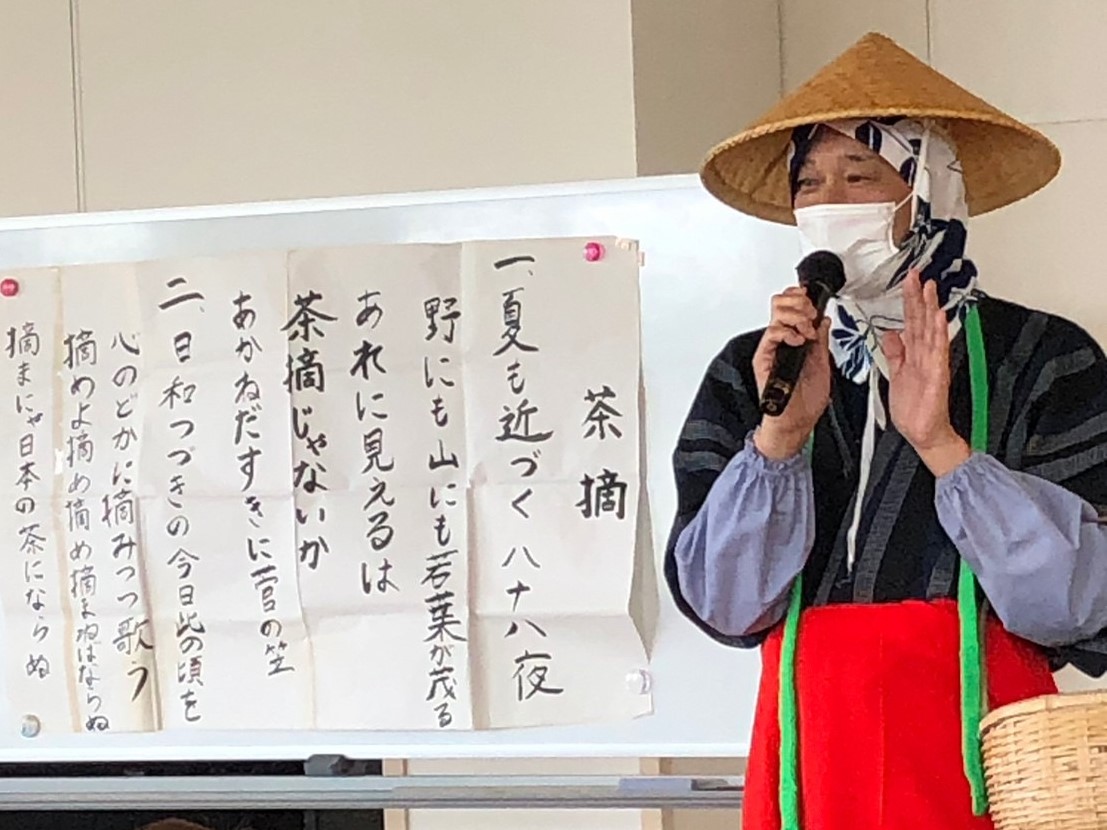 茶摘
一、夏も近づく八十八夜
野にも山にも若葉が茂る
あれに見えるは
茶摘じゃないか
あかねだすきに菅の笠
二、日和つづきの今日此の頃を
心のどかに摘みつつ歌う
摘めよ摘め摘め摘まねばならぬ
摘まにゃ日本の茶にならぬ